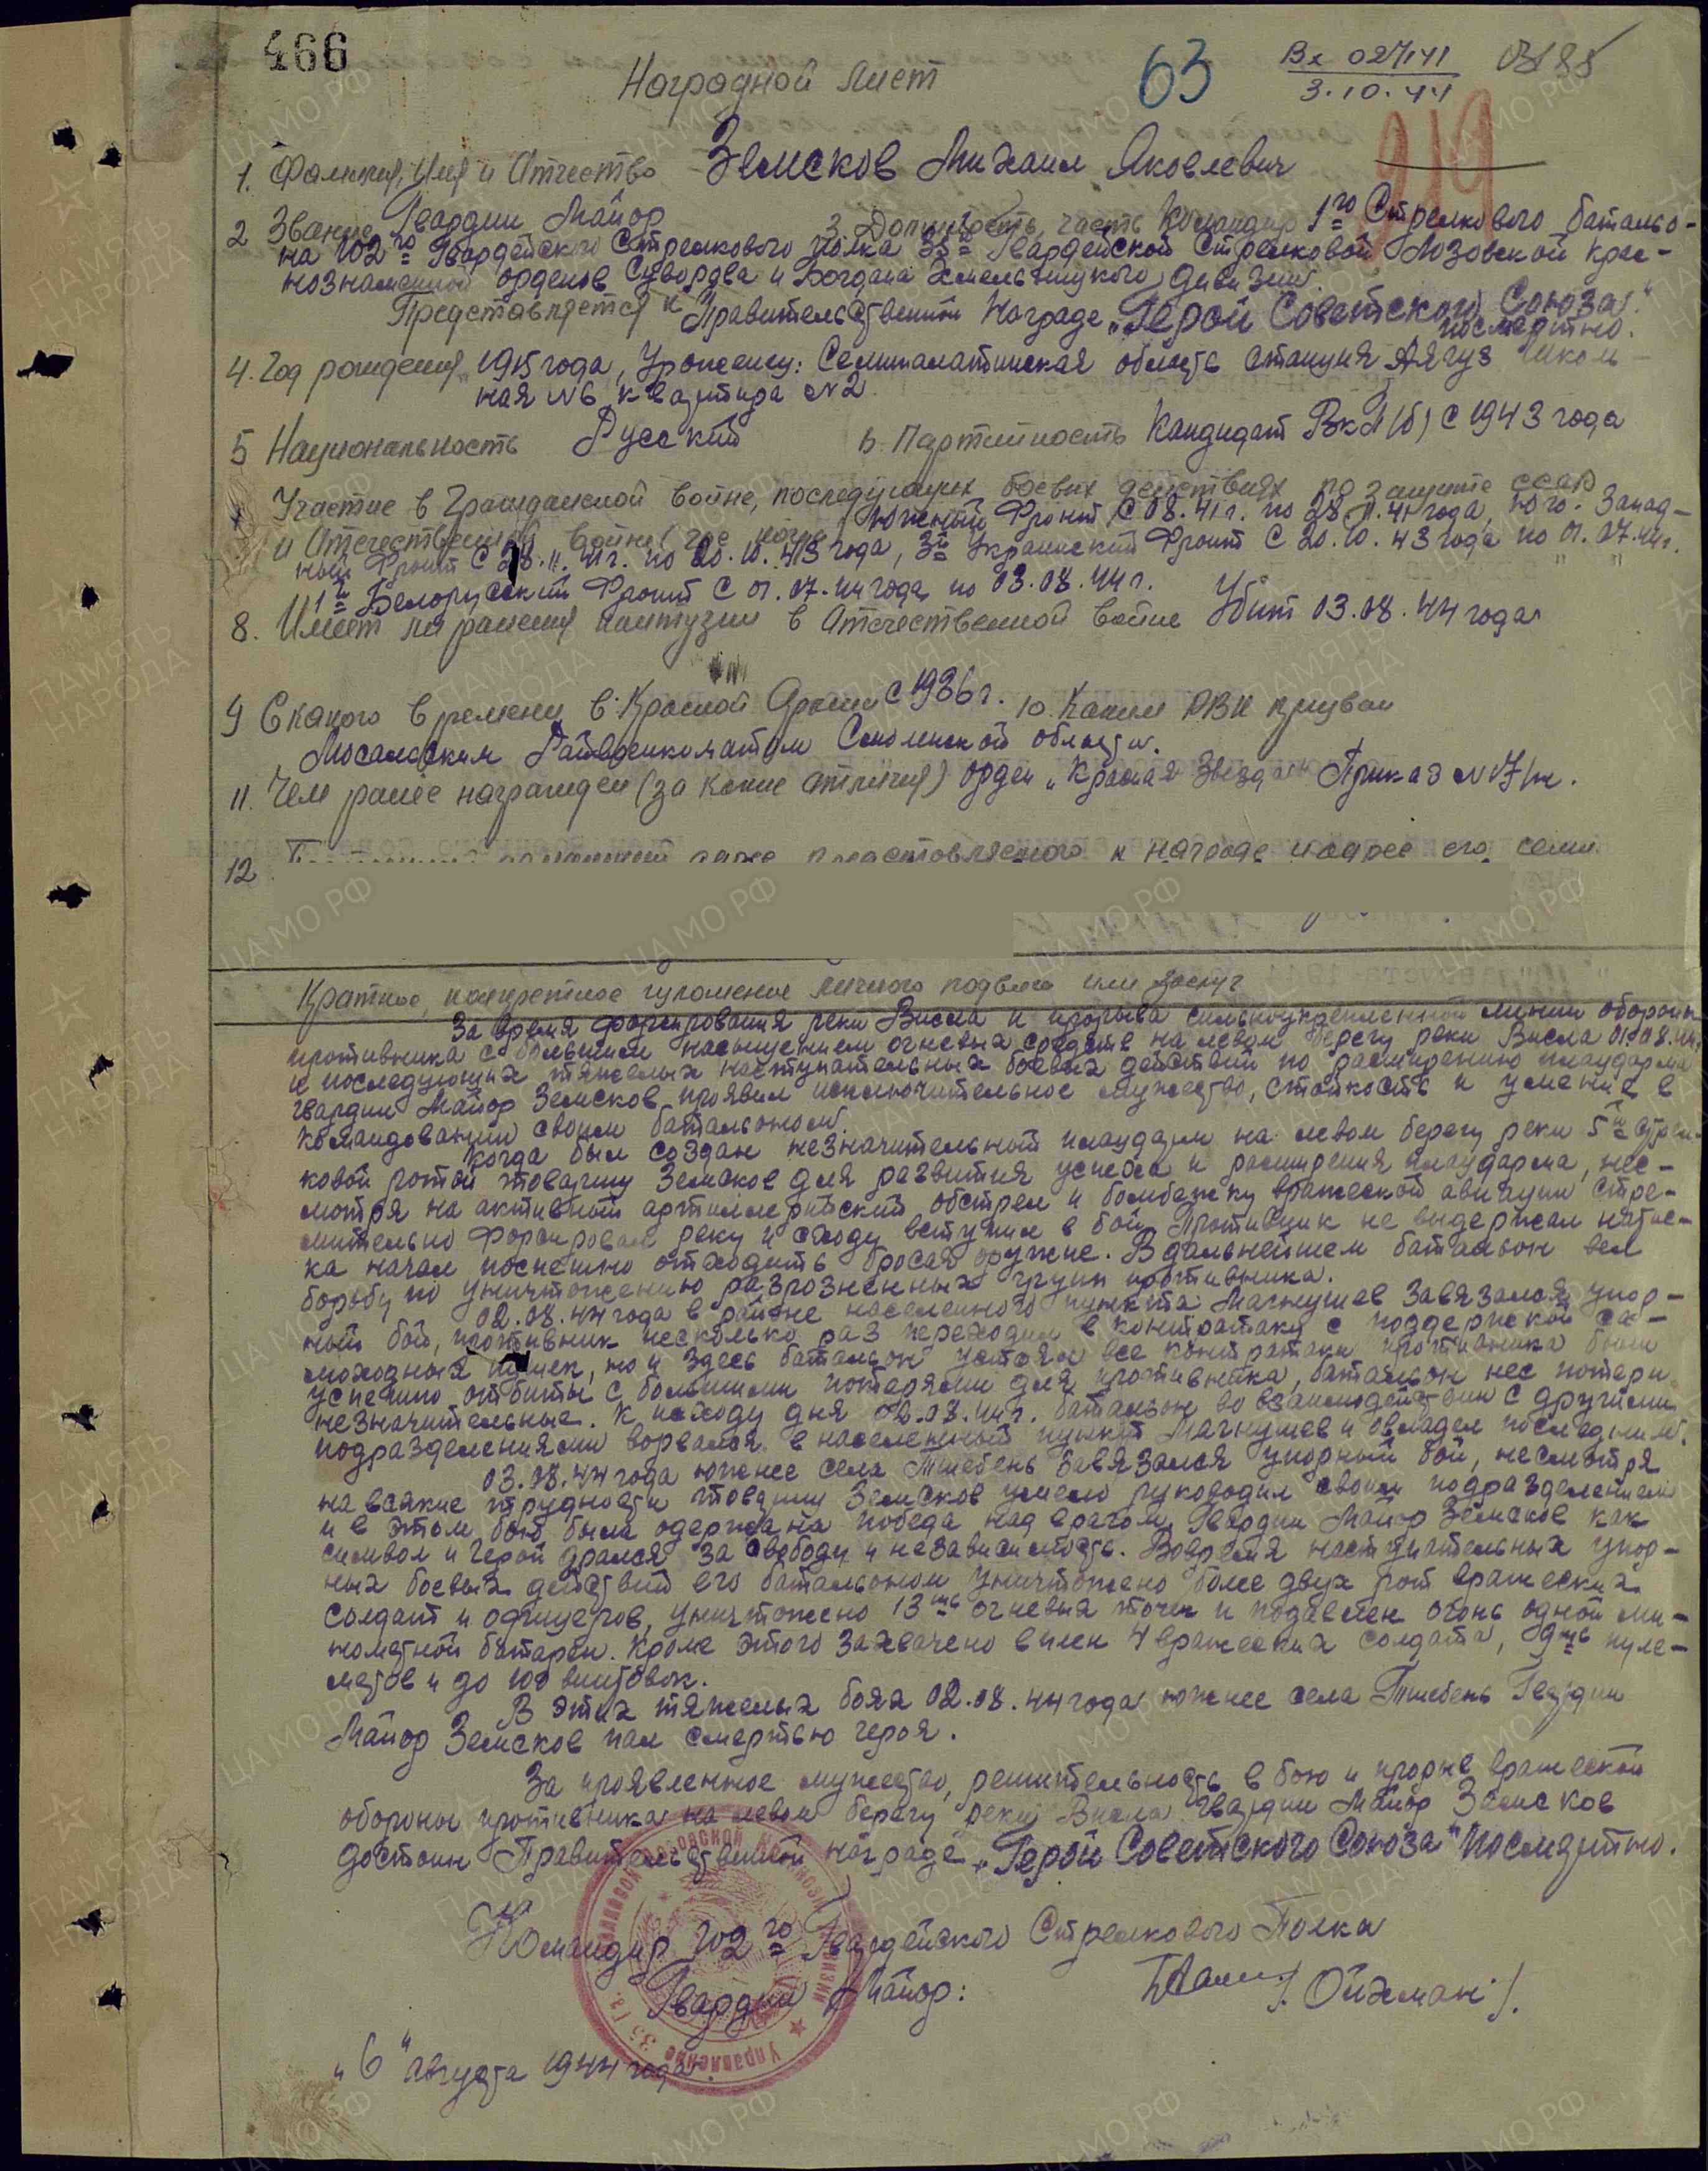 466
63
Вх 027141
3.10.44
919
Наградной лист
1. Фамилия, Имя и Отчество Земсков Михаил Яковлевич
2 Звание Гвардии Майор 3. Должность, часть Командир 1го Стрелкового батальо-
на 102го Гвардейского Стрелкового полка 35й Гвардейской Стрелковой Лозовской Крас-
нознаменной орденов Суворова и Богдана Хмельницкого дивизии.
Представляется к Правительственной Награде „Герой Советского Союза"
посмертно.
4. Год рождения 1915 года, Уроженец: Семипалатинская область станция Аягуз школь-
ная №6 квартира №2
5 Национальность Русский 6. Партийность Кандидат ВКП(б) с 1943 года
Участие в Гражданской войне, последующих боевых действиях по защите СССР
и Отечественной войне (где, когда) Южный Фронт с 08.41г. по 28.11.41 года, Юго-Запад-
ный Фронт с 28.11.41г. по 20.10.43 года, 3й Украинский Фронт с 20.10.43 года по 01.07.44г.
1й Белорусский Фронт с 01.07.44 года по 03.08.44г.
8. Имеет ли ранения контузии в Отечественной войне Убит 03.08.44 года
9 С какого времени в Красной Армии с 1936г. 10. Каким РВК призван
Мосальским Райвоенкоматом Смоленской области.
11. Чем ранее награжден (за какие отличия) орден „Красная Звезда" Приказ №17/н.
12 представляемого к награде и адрес его семьи
Краткое, конкретное изложение личного подвига или заслуг
За время форсирования реки Висла и прорыва сильноукрепленной линии обороны
противника с большим насыщением огневых средств на левом берегу реки Висла 01.08.44г.
и последующих тяжелых наступательных боевых действий по расширению плацдарма
гвардии Майор Земсков проявил исключительное мужество, стойкость и умение в
командовании своим батальоном.
Когда был создан незначительный плацдарм на левом берегу реки 5й стрел-
ковой ротой товарищ Земсков для развития успеха и расширения плацдарма, нес-
мотря на активный артиллерийский обстрел и бомбежку вражеской авиации стре-
мительно форсировал реку и сходу вступил в бой. Противник не выдержал натис-
ка начал поспешно отходить бросая оружие. В дальнейшем батальон вел
борьбу по уничтожению разрозненных групп противника.
02.08.44 года в районе населенного пункта Магнушев завязался упор-
ный бой, противник несколько раз переходил в контратаку с поддержкой са-
моходных пушек, но и здесь батальон устоял все контратаки противника были
успешно отбиты с большими потерями для противника, батальон нес потери
незначительные. К исходу дня 02.08.44г. батальон во взаимодействии с другими
подразделениями ворвался в населенный пункт Магнушев и овладел последним.
03.08.44 года южнее села Тшебень завязался упорный бой, несмотря
на всякие трудности товарищ Земсков умело руководил своим подразделением
и в этом бою была одержана победа над врагом. Гвардии Майор Земсков как
символ и герой дрался за свободу и независимость. Вовремя наступательных упор-
ных боевых действий его батальоном уничтожено более двух рот вражеских
солдат и офицеров, уничтожено 13ть огневых точек и подавлен огонь одной ми-
нометной батареи. Кроме этого захвачено в плен 4 вражеских солдата, 9ть пуле-
метов и до 100 винтовок.
В этих тяжелых боях 02.08.44 года южнее села Тшебень Гвардии
Майор Земсков пал смертью героя.
За проявленное мужество, решительность в бою и прорыв вражеской
обороны противника на левом берегу реки Висла гвардии Майор Земсков
достоин Правительственной награде „Герой Советского Союза" посмертно.
Командир 102го Гвардейского Стрелкового Полка
Гвардии Майор: /Ойхман/.
„6" августа 1944 года